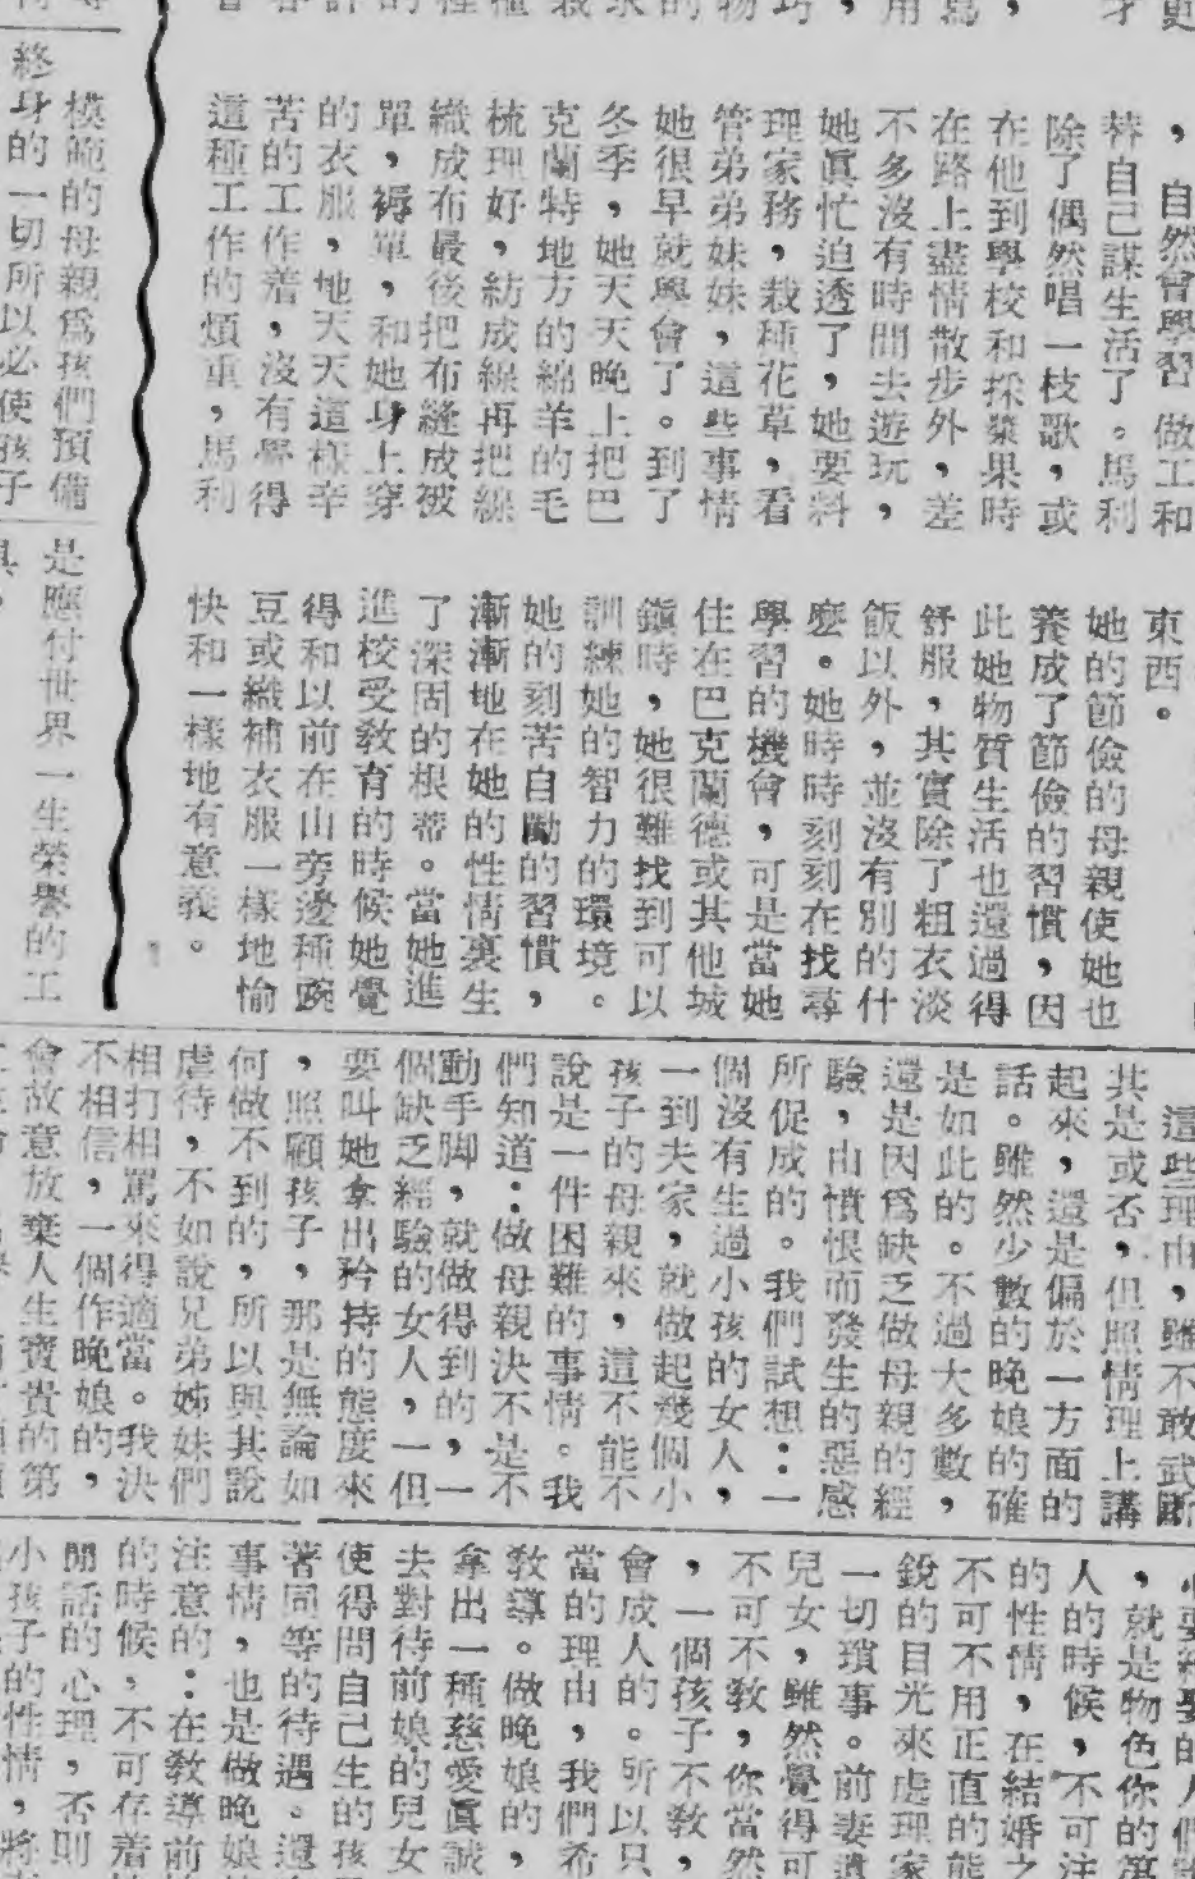 ，自然會學習 做工和
替自己謀生活了。馬利
除了偶然唱一枝歌，或
在他到學校和採漿果時
在路上盡情散步外，差
不多沒有時間去遊玩，
她眞忙迫透了，她要料
理家務，栽種花草，看
管弟弟妹妹，這些事情
她很早就學會了。到了
冬季，她天天晚上把巴
克蘭特地方的綿羊的毛
梳理好，紡成線再把線
織成布最後把布縫成被
單，褥單，和她身上穿
的衣服，地天天這樣辛
苦的工作着，沒有覺得
這種工作的煩重，馬利
東西。
她的節儉的母親使她也
養成了節儉的習慣，因
此她物質生活也還過得
舒服，其實除了粗衣淡
飯以外，並沒有別的什
麽。她時時刻刻在找尋
學習的機會，可是當她
住在巴克蘭德或其他城
鎭時，她很難找到可以
訓練她的智力的環境。
她的刻苦自勵的習慣，
漸漸地在她的性情裏生
了深固的根蒂。當她進
進校受敎育的時候她覺
得和以前在山旁邊種豌
豆或織補衣服一樣地愉
快和一樣地有意義。
模範的母親爲孩們預備
終身的一切所以必使孩子
是應付世界一生榮譽的工
具，
這些理由，雖不敢武斷
其是或否，但照情理上講
起來，還是偏於一方面的
話。雖然少數的晚娘的確
是如此的。不過大多數，
還是因爲缺乏做母親的經
驗，由憤恨而發生的惡感
所促成的。我們試想：一
個沒有生過小孩的女人，
一到夫家，就做起幾個小
孩子的母親來，這不能不
說是一件困難的事情。我
們知道：做母親決不是不
動手脚，就做得到的，一
個缺乏經驗的女人，一但
要叫她拿出矜持的態度來
，照顧孩子，那是無論如
何做不到的，所以與其說
虐待，不如說兄弟姊妹們
相打相駡來得適當。我決
不相信，一個作晚娘的，
會故意放棄人生寶貴的第
，就是物色你的第
人的時候，不可注
的性情，在結婚之
不可不用正直的態
銳的目光來處理家
一切瑣事。前妻遺
兒女，雖然覺得可
不可不敎，你當然
，一個孩子不敎，
會成人的。所以只
當的理由，我們希
敎導。做晚娘的，
拿出一種慈愛眞誠
去對待前娘的兒女
使得問自己生的孩
著同等的待遇。還
事情，也是做晚娘
注意的：在敎導前
的時候，不可存着
閒話的心理，否則
小孩子的性情，將